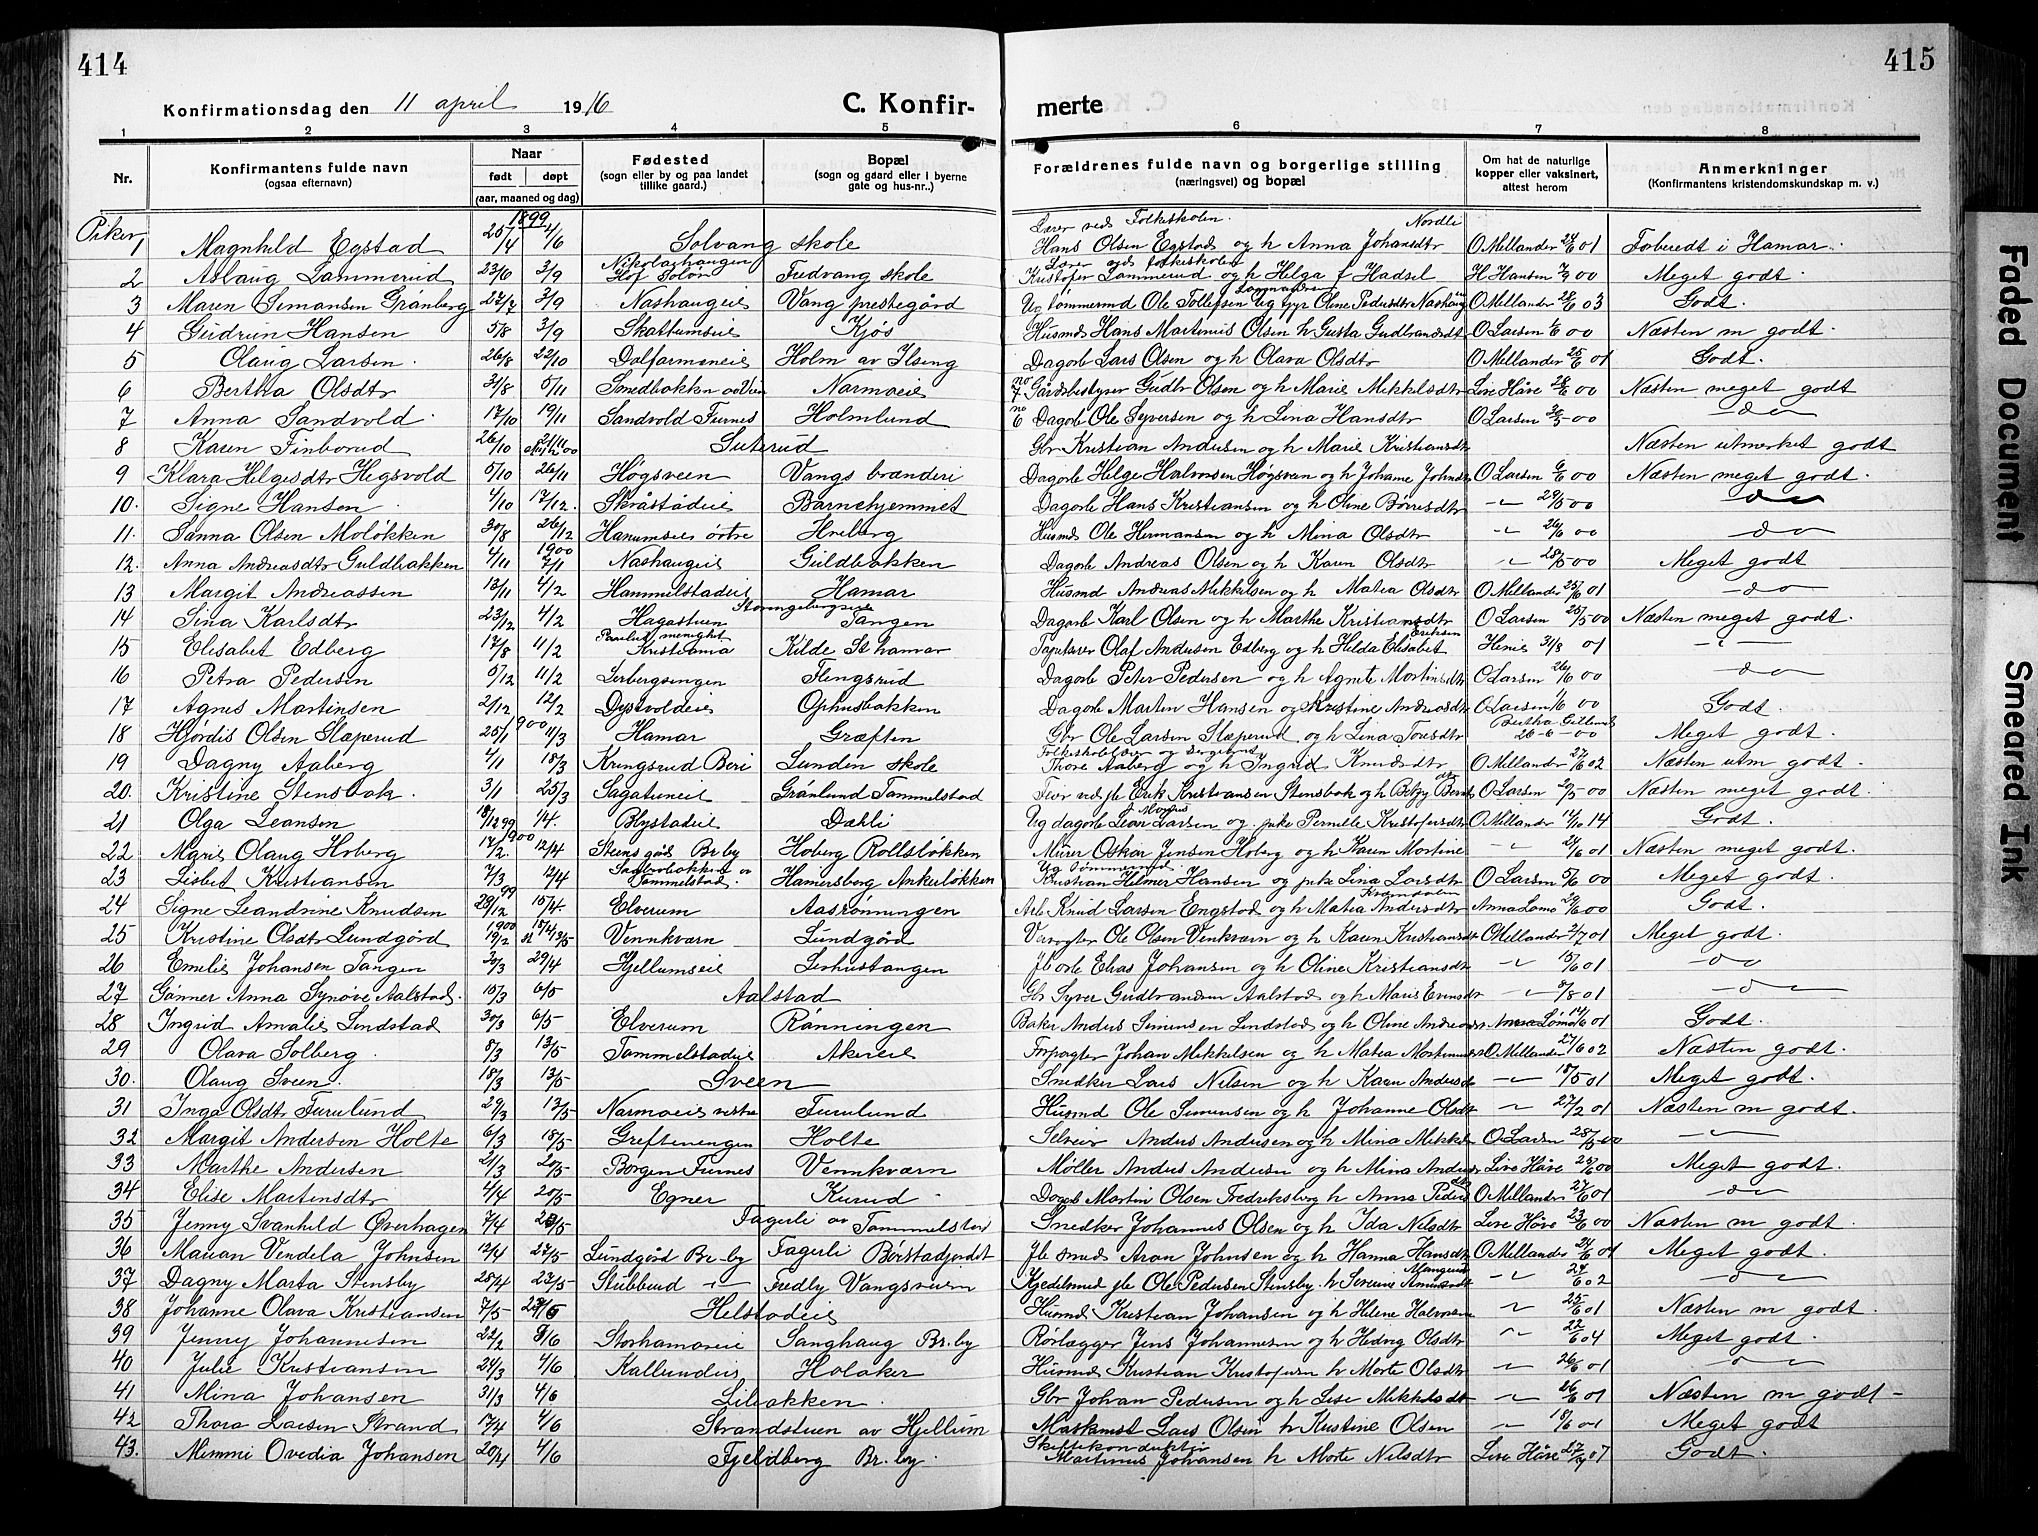 414
415
Konfirmationsdag den 11 april 1916
C. Konfir-
merte
1 2 3 4 5 6 7 8
Nr.
Konfirmantens fulde navn
(ogsaa efternavn)
Naar
født døpt
(aar, maaned og dag)
Fødested
(sogn eller by og paa landet
tillike gaard.)
Bopæl
(sogn og gaard eller i byerne
gate og hus-nr..)
Forældrenes fulde navn og borgerlige stilling
(næringsvei) og bopæl
Om hat de naturlige
kopper eller vaksinert,
attest herom
Anmerkninger
(Konfirmantens kristendomskundskap m. v.)
Piker
1899
Lærer ved Folkeskolen. Nordli
1 Magnhild Egstad 25/4 4/6 Solvang skole Hans Olsen Egstad og h Anna Johansdtr O Millander 24/6 01 Forberedt i Hamar.
2 Aslaug Lammerud 23/6 3/9 Hof Solør Fredvang skole Kristofer Lammerud og h Helga f Hadsel H Hansen 7/9 00 Meget godt.
3 Maren Simansen Grønberg 22/7 3/9 Nashaugeie Vang prestegård Ug tømmermd Ole Tollefsen O Millander 28/6 03 Godt.
4 Gudrun Hansen 5/8 3/9 Skattumseie Kjos Husmd Hans Martinius Olsen h Gusta Gudbrandsdtr O Larsen 1/6 00 Næsten m godt.
5 Olaug Larsen 26/8 22/10 Dalfarmeneie Holm av Ilseng Dagarb Lars Olsen og h Olava Olsdtr O Millander 25/6 01 Godt.
6 Bertha Olsdtr 31/8 5/11 Smedbakken Narmoeie no 7 Gårdsbestyrer Gudbr Olsen og h Marie Mikkelsdtr Live Håve 28/6 00 Næsten meget godt
7 Anna Sandvold 17/10 19/11 Sandvold Furnes Holmlund no 6 Dagarb Ole Syversen og h Lina Hansdtr O Larsen 00 do
8 Karen Finborud 26/10 21/11 Suterud Gbr Kristian Andersen og h Marie Kristiansdtr Næsten utmerket godt
9 Klara Helgesdtr Hegsvold 5/10 26/11 Høgsveen Vangs brænderi Dagarb Helge Halvorsen Høgsveen og h Johanne Johnsdtr O Larsen 6/6 00 Næsten meget godt.
10. Signe Hansen 4/10 17/12. Skråstadeie Barnehjemmet Dagarb Hans Kristiansen og h Oline Børresdtr 00 do
11. Sanna Olsen Moløkken 30/8 26/12 Hanumseie østre Hreberg Husmd Ole Hermansen og h Mina Olsdtr 26/6 00 do
1900
12. Anna Andreasdtr Guldbakken 4/11 7/1 Nashaugeie Guldbakken Dagarb Andreas Olsen og h Karen Olsdtr 28/5 00 Meget godt
13 Margit Andreassen 13/11 4/2 Hammelstadeie Hamar Husmd Andreas Mikkelsen og h Matea Olsdtr O Millander 25/6 01 do
14 Sina Karlsdtr 23/12 4/2 Hagastuen Tangen Dagarb Karl Olsen og h Marthe Kristiansdtr O Larsen 25/5 00 Næsten meget godt.
15 Elisabet Edberg 17/8 11/2 Kristiania Kilde St hamar Tapetserer Olaf Andersen Edberg og h Hilda Elisabet Eriksen 31/8 01
16 Petra Pedersen 5/12 11/2 Lerbergsengen Flengsrud Dagarb Peter Pedersen og h Agnete Mortinsdtr O Larsen 26/6 00 do
17 Agnes Martinsen 2/12 12/2 Dystvoldeie Ophusbakken Dagarb Marten Hansen og Kristine Andreasdtr O Larsen 1/6 00 Godt.
1900
18 Hjørdis Olsen Slæperud 25/1 11/3 Hamar Græften Gbr Ole Larsen Slæperud og h Lina Toresdtr 26-6-00 Meget godt.
19 Dagny Aaberg 4/1 18/3 Kringsrud Beri Lunden skole Thore Aaberg og h Ingrid Knudsdtr O Millander 27/6 02 Næsten utm godt.
20. Kristine Stensbak. 3/1 25/3 Sagatuneie Grønlund Tommelstad Erik Kristiansen Stensbak og h O Larsen 00 Næsten meget godt.
21 Olga Leansen 18/12 99 1/4. Blystadeie Dæhli Ug dagarb Lean Larsen og pike Pernille Kristofersdtr O Millander 14 Godt.
1900
22 Maris Olaug Hoberg 17/2. 12/4 Steens gåd Br.by Hoberg Rollsløkken Murer Oskar Jensen Hoberg og h Karen Mortine 24/6 01 Næsten meget godt.
23 Lisbet Kristiansen 7/3 12/4 Tommelstad. Hamersborg Ankerløkken Kristian Helmer Hansen og pike Lina Larsdtr O Larsen 5/6 00 Meget godt.
24 Signe Leandrine Knudsen 28/12 99 15/4. Elverum Aasrønningen Arb Knud Larsen Engstad og h Matea Andersdtr Anna Lømo 29/6 00 Godt.
25 Kristine Olsdtr Lundgård 19/2 1900 Vennkværn Lundgård Ole Olsen Venkværn og h Karen Kristiansdtr O Millander 2/7 01 Meget godt.
26 Emelie Johansen Tangen 20/3 29/4 Hjellumseie Sirhustangen Elias Johansen og h Oline Kristiansdtr 15/6 01 do
27 Gunner Anna Synøve Aalstad. 15/3 6/5 Aalstad Gbr Syver Gudbrandsen Aalstad og h Maris Evensdtr 8/8 01 do
28 Ingrid Amalie Lindstad 30/3 6/5 Elverum Rønningen Baker Anders Simensen Lindstad og h Oline Andreasdtr Anna Lømo 14/6 01 Godt.
29 Olava Solberg. 8/3 13/5 Tommelstadeie Akereie Forpagter Johan Mikkelsen og h Matea Mortinusdtr O Millander 27/6 02 Næsten godt.
30. Olaug Sveen. 18/3 13/5 Sveen Snedker Lars Nilsen og h Karen Andersdtr 18/5 01 Meget godt.
31 Inga Olsdtr Furulund 29/3 13/5 Narmoeie vestre Furulund Husmd Ole Simensen og h Johanne Olsdtr 27/2 01 Næsten m godt.
32 Margit Andersen Holte 6/3 18/5 Greftenengen Holte Selveier Anders Andersen og h Mina Mikkels O Larsen 28/5 00
33 Marthe Andersen 21/3 20/5 Borgen Furnes Vennkværn Møller Anders Andersen og h Mina Anders Live Håve 25/6 00 Meget godt.
34 Elise Martinsdtr 4/4 20/5 Egner Kurud Dagarb Martin Olsen Fredriksberg h Anna Pedersdtr O Millander 27/6 01 do
35 Jenny Svanhild Øverhagen 7/4 23/5 Fagerli av Tommelstad Snedker Johannes Olsen og h Ida Nilsdtr Live Håve 23/6 00 Næsten m godt.
36 Marian Vendela Johnsen 12/4 22/5 Lundgård Br.by Fagerli Børstadjordet Jb smed Aron Johnsen og h Hanna Hansdtr O Millander 24/6 01 Meget godt.
37 Dagny Marta Stensby 25/4 23/5 Stubberud Fredly Vangsveien Kjedelsmed Ole Pedersen Stensby h Severine 24/6 02 do
38 Johanne Olava Kristiansen 7/5 27/5 Helstadeie Husmd Kristian Johansen og h Helene Halvorsen 25/6 01 Næsten m godt.
39 Jenny Johannesen 22/2 3/6 Storhamareie Sanghaug Br.by Rørlægger Jens Johannesen og h Hedvig Olsdtr 22/6 04 Meget godt.
40 Julie Kristiansen 24/3 4/6 Kallundeie Holaker Husmd Kristian Kristofersen h Marte Olsdtr 26/6 01 do
41 Mina Johansen 31/3 4/6 Libakken. Gbr Johan Pedersen og h Lise Mikkelsdtr 26/6 01 Næsten m godt
42 Thora Larsen Strand 17/4 4/6 Strandstuen av Hjellum Maskinist Lars Olsen h Kristine Olsen 18/6 01 Meget godt
43. Mimmi Ovedia Johansen 20/4 4/6 Fjeldberg Br.by. Skiftekonduktør Martinus Johansen h Marte Nilsdtr Live Håve 07 Godt.
Faded Document
Smeared Ink